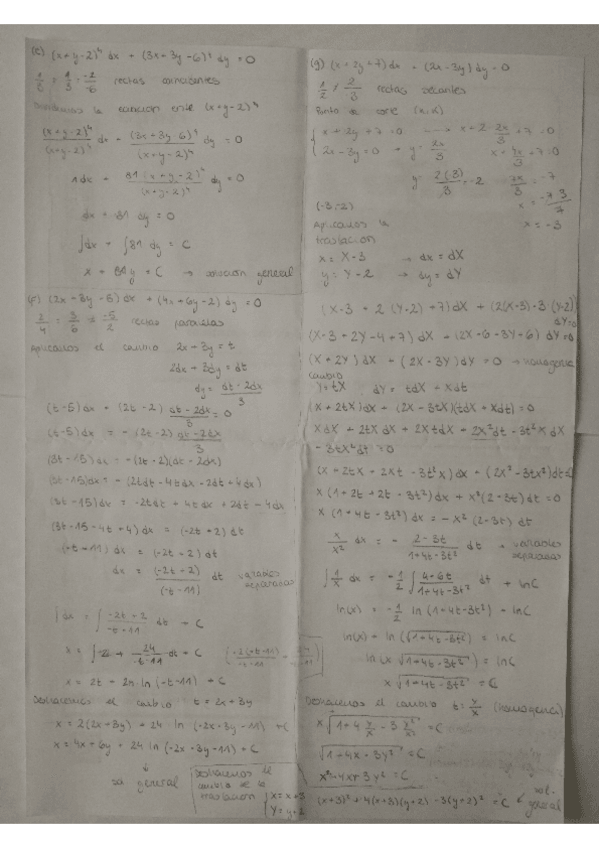 (e) (x+y-2)⁴ dx + (3x+3y-6)⁴ dy = 0
1/3 = 1/3 = -2/-6 rectas coincidentes
la ecuación entre (x+y-2)⁴
(x+y-2)⁴/(x+y-2)⁴ dx + (3x+3y-6)⁴/(x+y-2)⁴ dy = 0
1dx + 81(x+y-2)⁴/(x+y-2)⁴ dy = 0
dx + 81 dy = 0
∫dx + ∫81 dy = C
x + 81y = C → solución general
(f) (2x+3y-5) dx + (4x+6y-2) dy = 0
2/4 = 3/6 ≠ -5/2 rectas paralelas
Aplicamos el cambio 2x+3y=t
2dx+3dy=dt
dy = dt-2dx/3
(t-5)dx + (2t-2) dt-2dx/3 = 0
(t-5)dx = -(2t-2) dt-2dx/3
(3t-15)dx = -(2t-2)(dt-2dx)
(3t-15)dx = -(2tdt-4tdx-2dt+4dx)
(3t-15)dx = -2tdt+4tdx+2dt-4dx
(3t-15-4t+4)dx = (-2t+2)dt
(-t-11)dx = (-2t+2)dt
dx = (-2t+2)/(-t-11) dt variables separadas
∫dx = ∫ -2t+2/-t-11 dt + C
x = 2t - 24 ln(-t-11) + C
Deshacemos el cambio: t=2x+3y
x = 2(2x+3y) + 24 ln(-2x-3y-11) + C
x = 4x+6y + 24 ln(-2x-3y-11) + C
↓
general
Deshacemos el
cambio de la
traslación { X = x+3
Y = y+2
(g) (x+2y+7)dx + (2x-3y)dy = 0
1/2 ≠ 2/3 rectas secantes
Punto de corte
{ x+2y+7=0 → x+2·2x/3+7=0
2x-3y=0 → y=2x/3 x+4x/3+7=0
y = 2(-3)/3 = -2 7x/3 = -7
x = -7·3/7
(-3,-2) x = -3
Aplicamos la
traslación
x = X-3 → dx = dX
y = Y-2 → dy = dY
(X-3+2(Y-2)+7)dX + (2(X-3)-3(Y-2))dY=0
(X-3+2Y-4+7)dX + (2X-6-3Y+6)dY=0
(X+2Y)dX + (2X-3Y)dY = 0 → homogénea
cambio
Y=tX dY = tdX + Xdt
(X+2tX)dX + (2X-3tX)(tdX+Xdt)=0
XdX + 2tXdX + 2XtdX + 2X²dt - 3t²XdX
- 3tX²dt = 0
(X+2tX+2Xt-3t²X)dX + (2X²-3tX²)dt=0
X(1+2t+2t-3t²)dX + X²(2-3t)dt=0
X(1+4t-3t²)dX = -X²(2-3t)dt
X/X² dX = - 2-3t/1+4t-3t² dt → variables separadas
∫1/X dX = -1/2 ∫ 4-6t/1+4t-3t² dt + lnC
ln(x) = -1/2 ln(1+4t-3t²) + lnC
ln(x) + ln(√1+4t-3t²) = lnC
ln(x√1+4t-3t²) = lnC
x√1+4t-3t² = C
Deshacemos el cambio t=Y/X (homogénea)
x√1+4 y/x - 3 y²/x² = C
(x+3)²+4(x+3)(y+2)-3(y+2)² = C ← sol. general